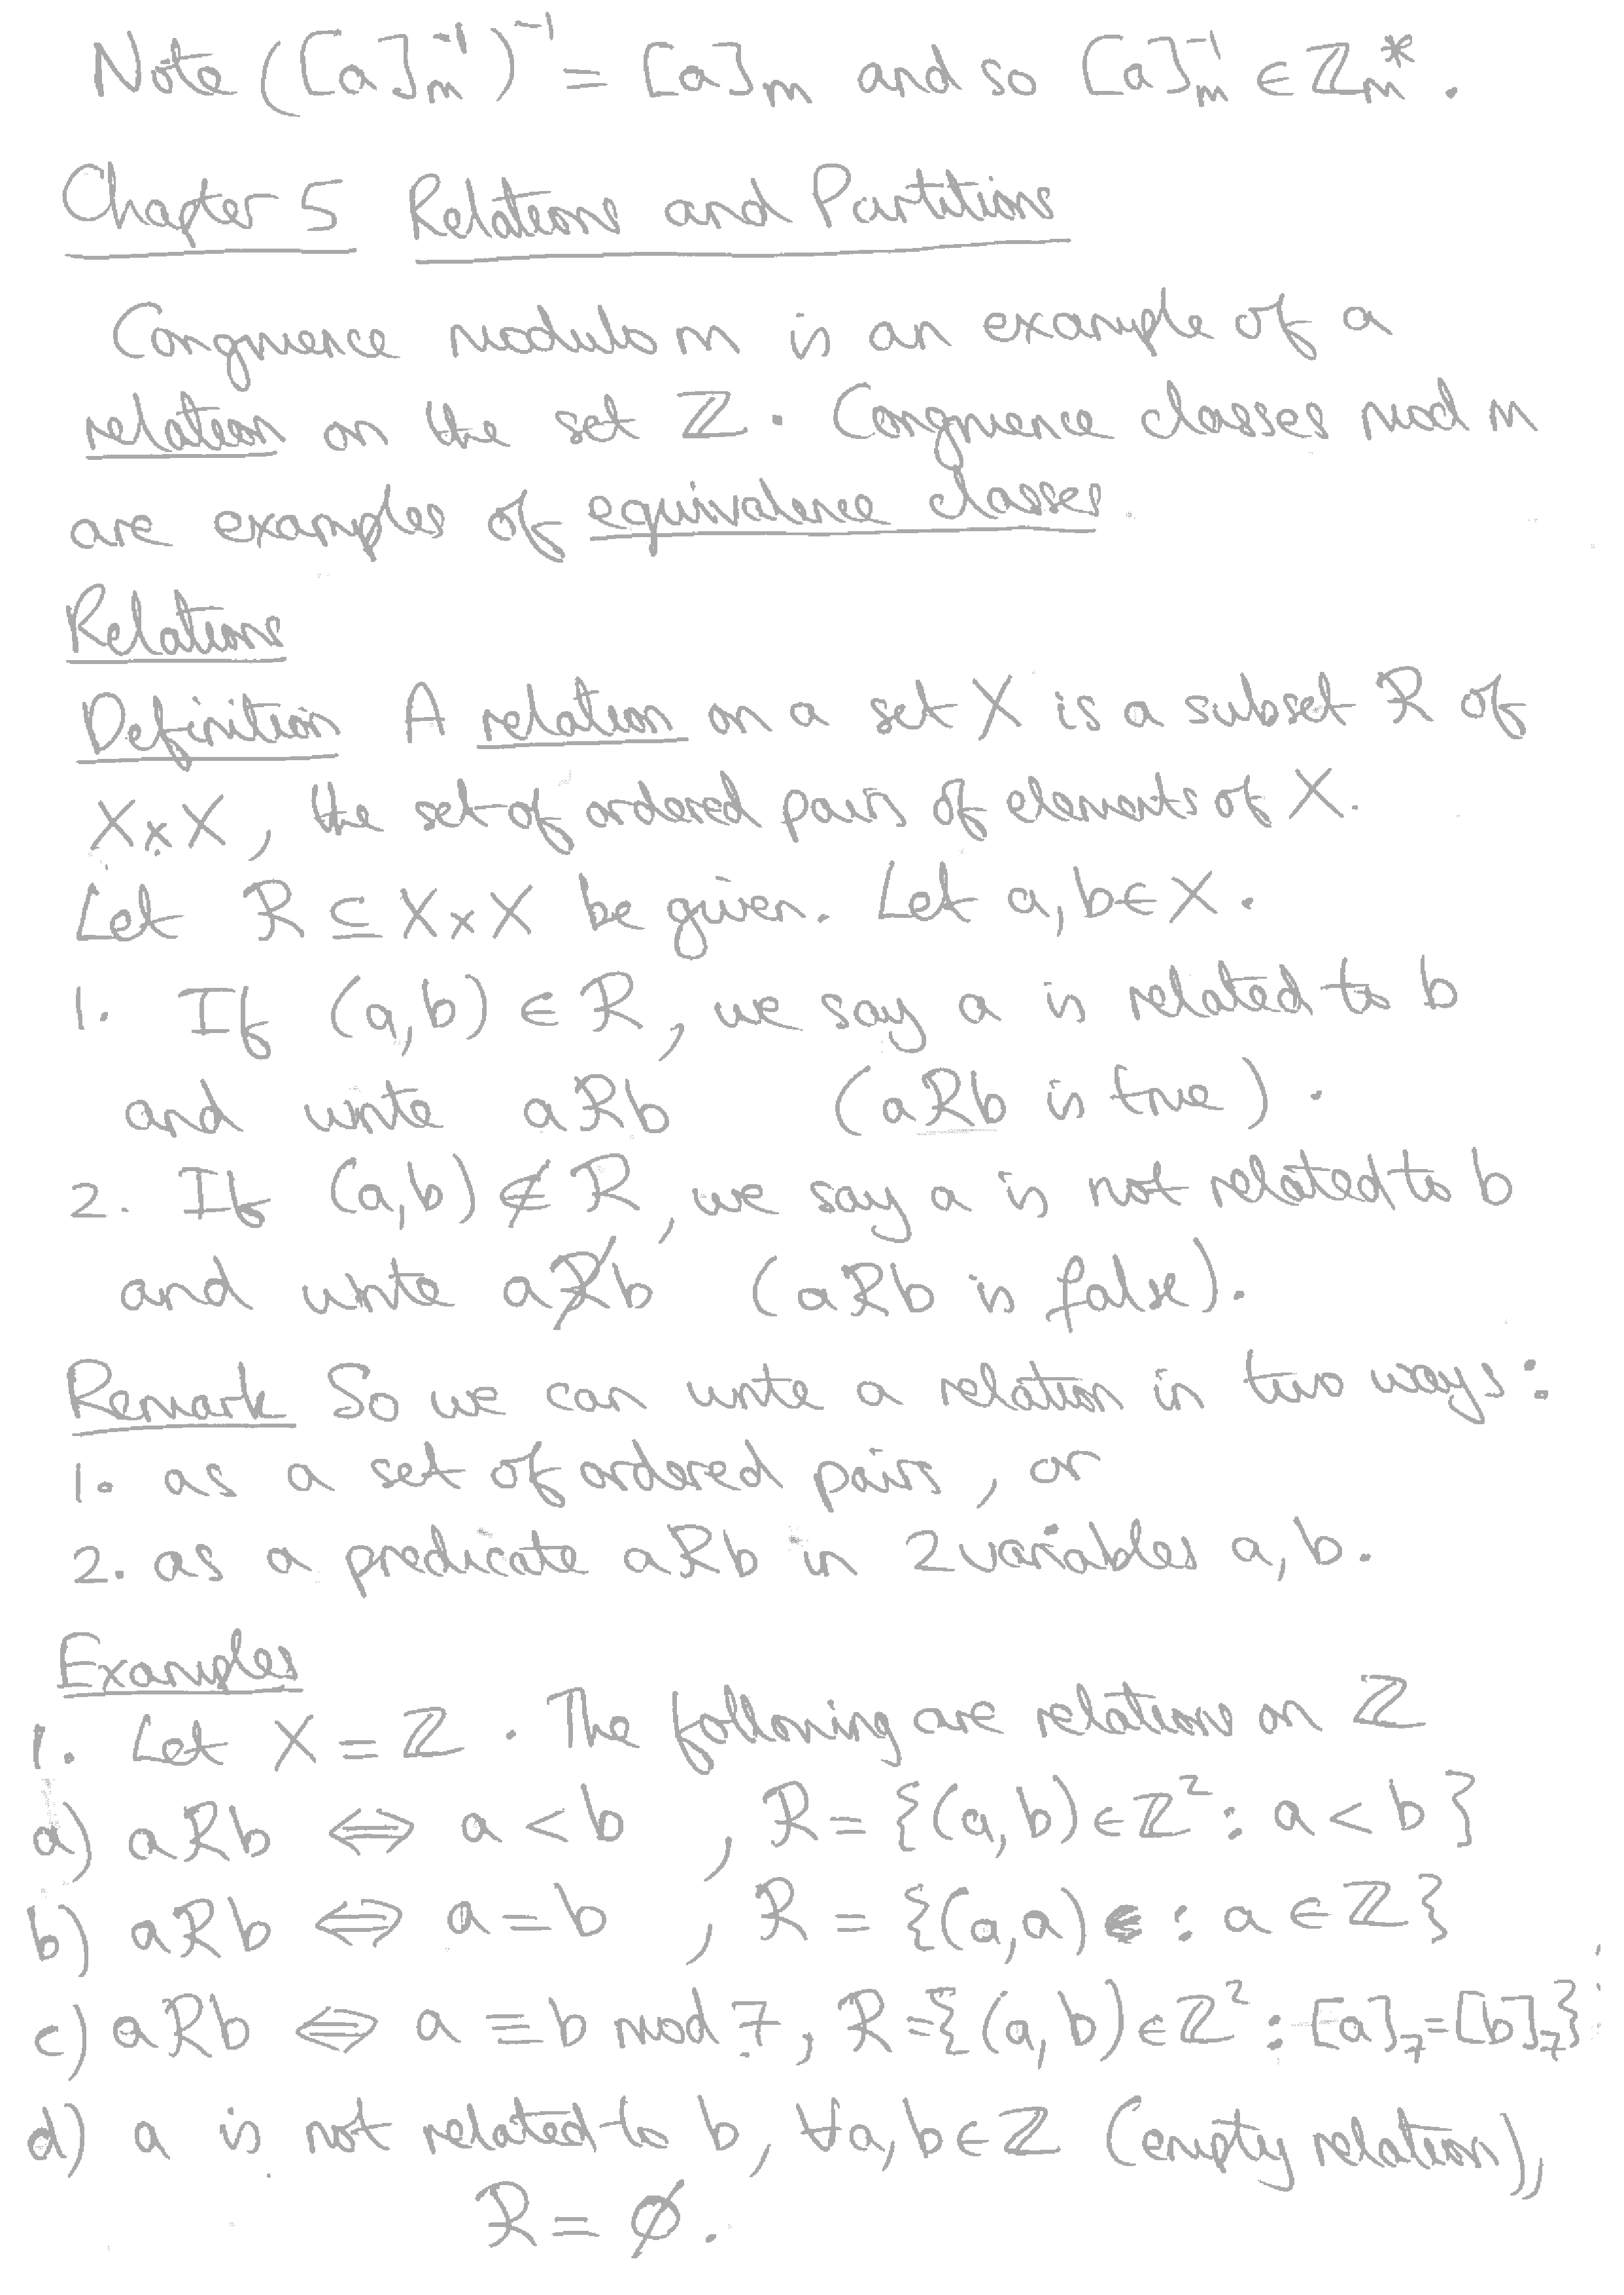 Note ([a]ₘ⁻¹)⁻¹ = [a]ₘ and so [a]ₘ⁻¹ ∈ ℤₘ*.
Chapter 5 Relations and Partitions
Congruence modulo m is an example of a
relation on the set ℤ. Congruence classes mod m
are examples of equivalence classes.
Relations
Definition A relation on a set X is a subset R of
X×X, the set of ordered pairs of elements of X.
Let R ⊆ X×X be given. Let a, b ∈ X.
1. If (a,b) ∈ R, we say a is related to b
and write aRb (aRb is true).
2. If (a,b) ∉ R, we say a is not related to b
and write aR̸b (aRb is false).
Remark So we can write a relation in two ways:
1. as a set of ordered pairs, or
2. as a predicate aRb in 2 variables a, b.
Examples
1. Let X = ℤ. The following are relations on ℤ
a) aRb ⇔ a < b , R = {(a,b) ∈ ℤ² : a < b}
b) aRb ⇔ a = b , R = {(a,a) : a ∈ ℤ}
c) aRb ⇔ a ≡ b mod 7, R = {(a,b) ∈ ℤ² : [a]₇ = [b]₇}
d) a is not related to b, ∀a, b ∈ ℤ (empty relation),
R = ∅.